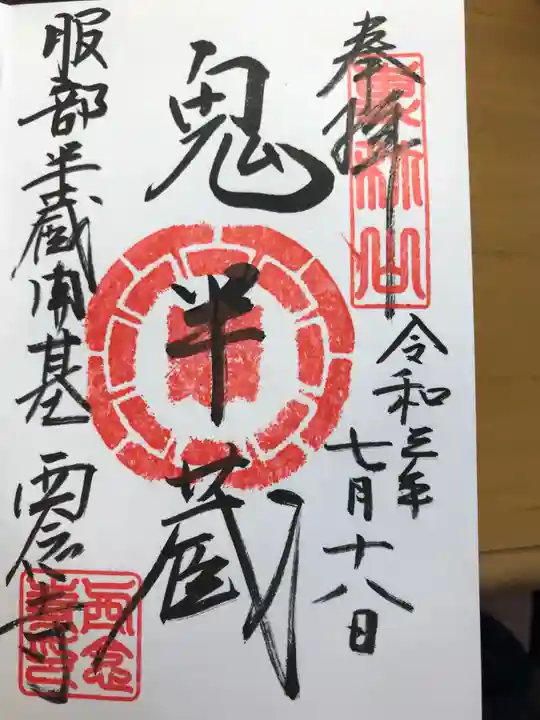 奉拝
令和三年
七月十八日
鬼半蔵
服部半蔵開基 西念寺